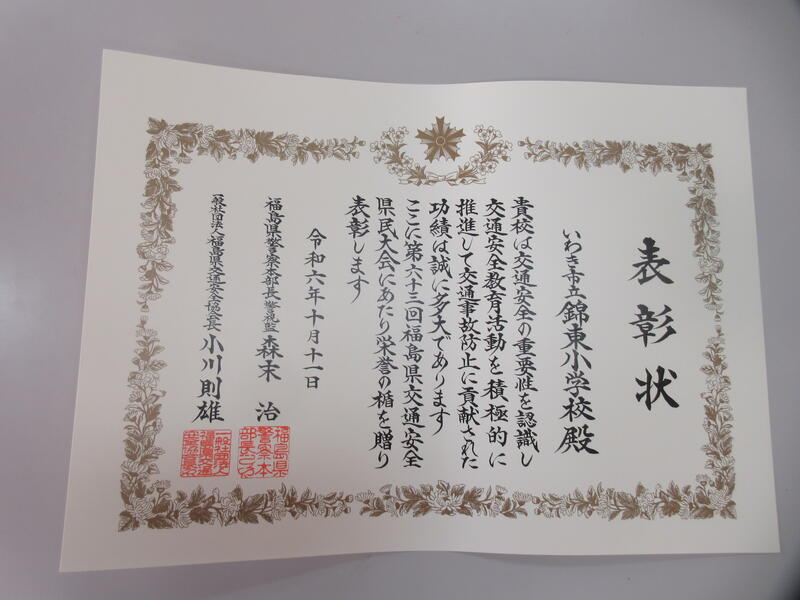 表彰状
いわき市立錦東小学校殿
貴校は交通安全の重要性を認識し
交通安全教育活動を積極的に
推進して交通事故防止に貢献された
功績は誠に多大であります
ここに第六十三回福島県交通安全
県民大会にあたり栄誉の楯を贈り
表彰します
令和六年十月十一日
福島県警察本部長警視監 森末 治
一般社団法人福島県交通安全協会長 小川則雄
福島県
警察本
部長之印